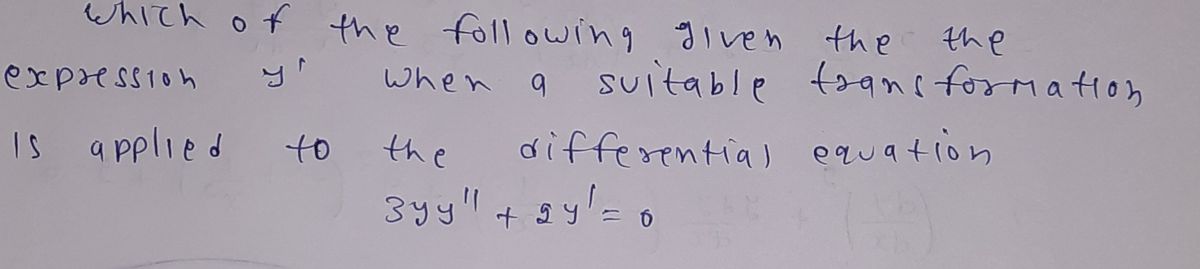 which of the following given the the
expression y' when a suitable transformation
is applied to the differential equation
3yy'' + 2y' = 0